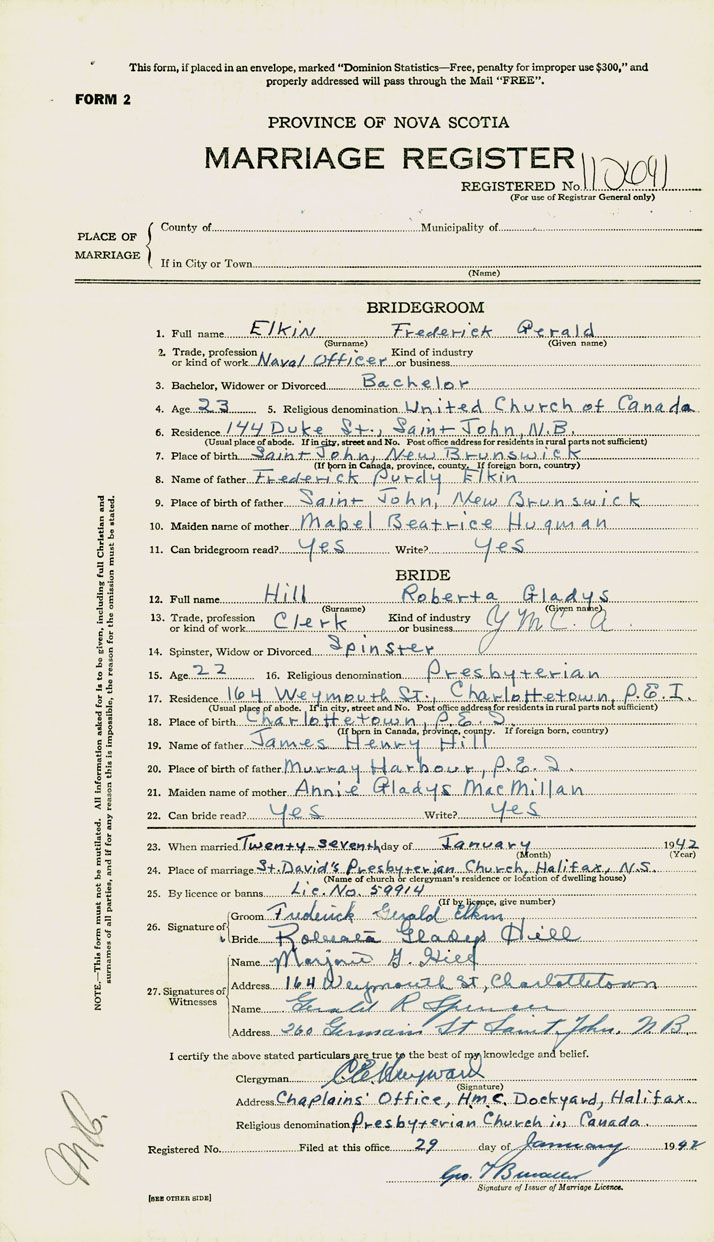 This form, if placed in an envelope, marked "Dominion Statistics—Free, penalty for improper use $300," and
properly addressed will pass through the Mail "FREE".
FORM 2
PROVINCE OF NOVA SCOTIA
MARRIAGE REGISTER
REGISTERED No.
(For use of Registrar General only)
PLACE OF MARRIAGE
County of Municipality of
If in City or Town
(Name)
BRIDEGROOM
1. Full name Elkin Frederick Gerald
(Surname) (Given name)
2. Trade, profession or kind of work Naval Officer Kind of industry or business
3. Bachelor, Widower or Divorced Bachelor
4. Age 23 5. Religious denomination United Church of Canada
6. Residence 144 Duke St., Saint John, N.B.
(Usual place of abode. If in city, street and No. Post office address for residents in rural parts not sufficient)
7. Place of birth Saint John, New Brunswick
(If born in Canada, province, county. If foreign born, country)
8. Name of father Frederick Purdy Elkin
9. Place of birth of father Saint John, New Brunswick
10. Maiden name of mother Mabel Beatrice Hugman
11. Can bridegroom read? Yes Write? Yes
BRIDE
12. Full name Hill Roberta Gladys
(Surname) (Given name)
13. Trade, profession or kind of work Clerk Kind of industry or business Y.M.C.A.
14. Spinster, Widow or Divorced Spinster
15. Age 22 16. Religious denomination Presbyterian
17. Residence 164 Weymouth St., Charlottetown, P.E.I.
(Usual place of abode. If in city, street and No. Post office address for residents in rural parts not sufficient)
18. Place of birth Charlottetown, P.E.I.
(If born in Canada, province, county. If foreign born, country)
19. Name of father James Henry Hill
20. Place of birth of father Murray Harbour, P.E.I.
21. Maiden name of mother Annie Gladys MacMillan
22. Can bride read? Yes Write? Yes
23. When married Twenty-seventh day of January 1942
(Month) (Year)
24. Place of marriage St. David's Presbyterian Church, Halifax, N.S.
(Name of church or clergyman's residence or location of dwelling house)
25. By licence or banns Lic. No. 59914
(If by licence, give number)
26. Signature of
Groom Frederick Gerald Elkin
Bride Roberta Gladys Hill
27. Signatures of Witnesses
Name Marjorie G. Hill
Address 164 Weymouth St, Charlottetown
Name Gerald R Spencer
Address 260 Germain St Saint John, N B.
I certify the above stated particulars are true to the best of my knowledge and belief.
Clergyman
(Signature)
Address Chaplains' Office, H.M.C. Dockyard, Halifax.
Religious denomination Presbyterian Church in Canada.
Registered No. Filed at this office 29 day of January 1942
Geo.
Signature of Issuer of Marriage Licence.
[SEE OTHER SIDE]
NOTE.—This form must not be mutilated. All information asked for is to be given, including full Christian and
surnames of all parties, and if for any reason this is impossible, the reason for the omission must be stated.